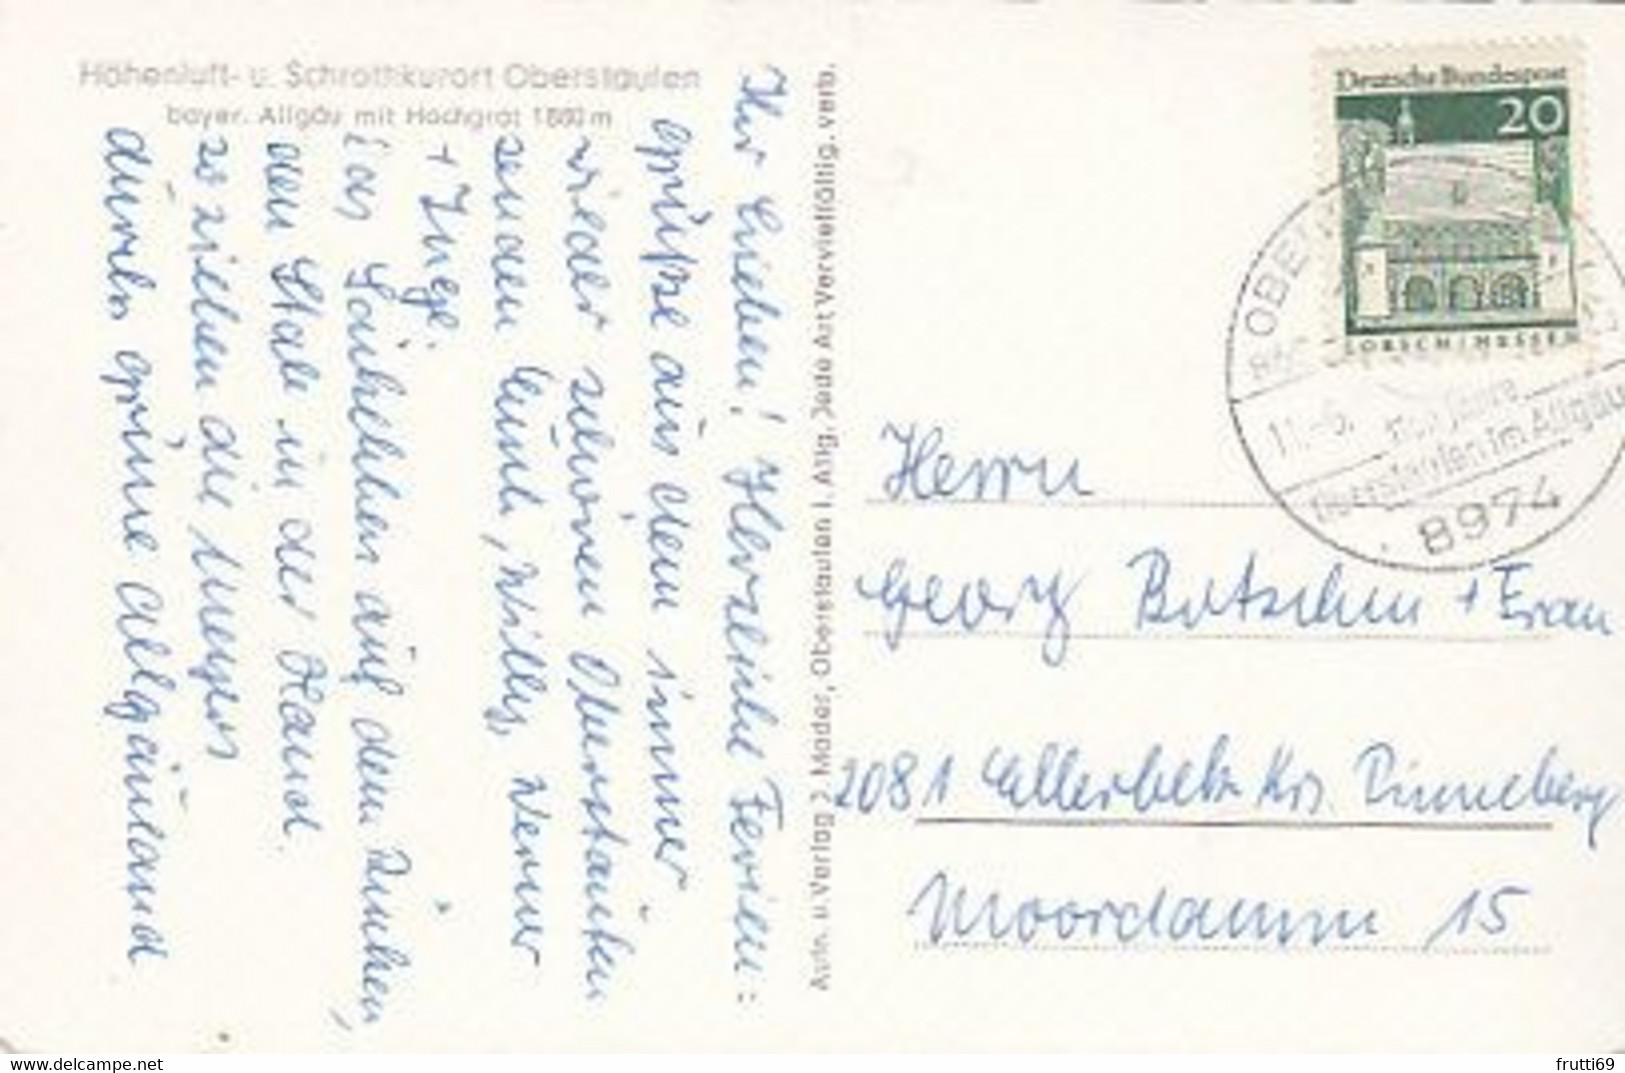 Höhenluft- u. Schrothkurort Oberstaufen
bayer. Allgäu mit Hochgrat 1880 m
Ihr Lieben! Herzliche Ferien=
grüße aus dem immer
wieder schönen Oberstaufen
senden Eure, Willy, Werner
+ Inge.
Das Säckchen auf dem Rücken,
den Stab in der Hand
so ziehen die Meyers
durchs grüne Allgäuland
Aufn. u. Verlag J. Mader, Oberstaufen i. Allg. Jede Art Vervielfältig. verb.
Deutsche Bundespost
20
LORSCH/HESSEN
11.-6.
Oberstaufen im Allgäu
8974
Herrn
Georg Botschen + Frau
2081 Ellerbek Krs. Pinneberg
Moordamm 15
frutti69